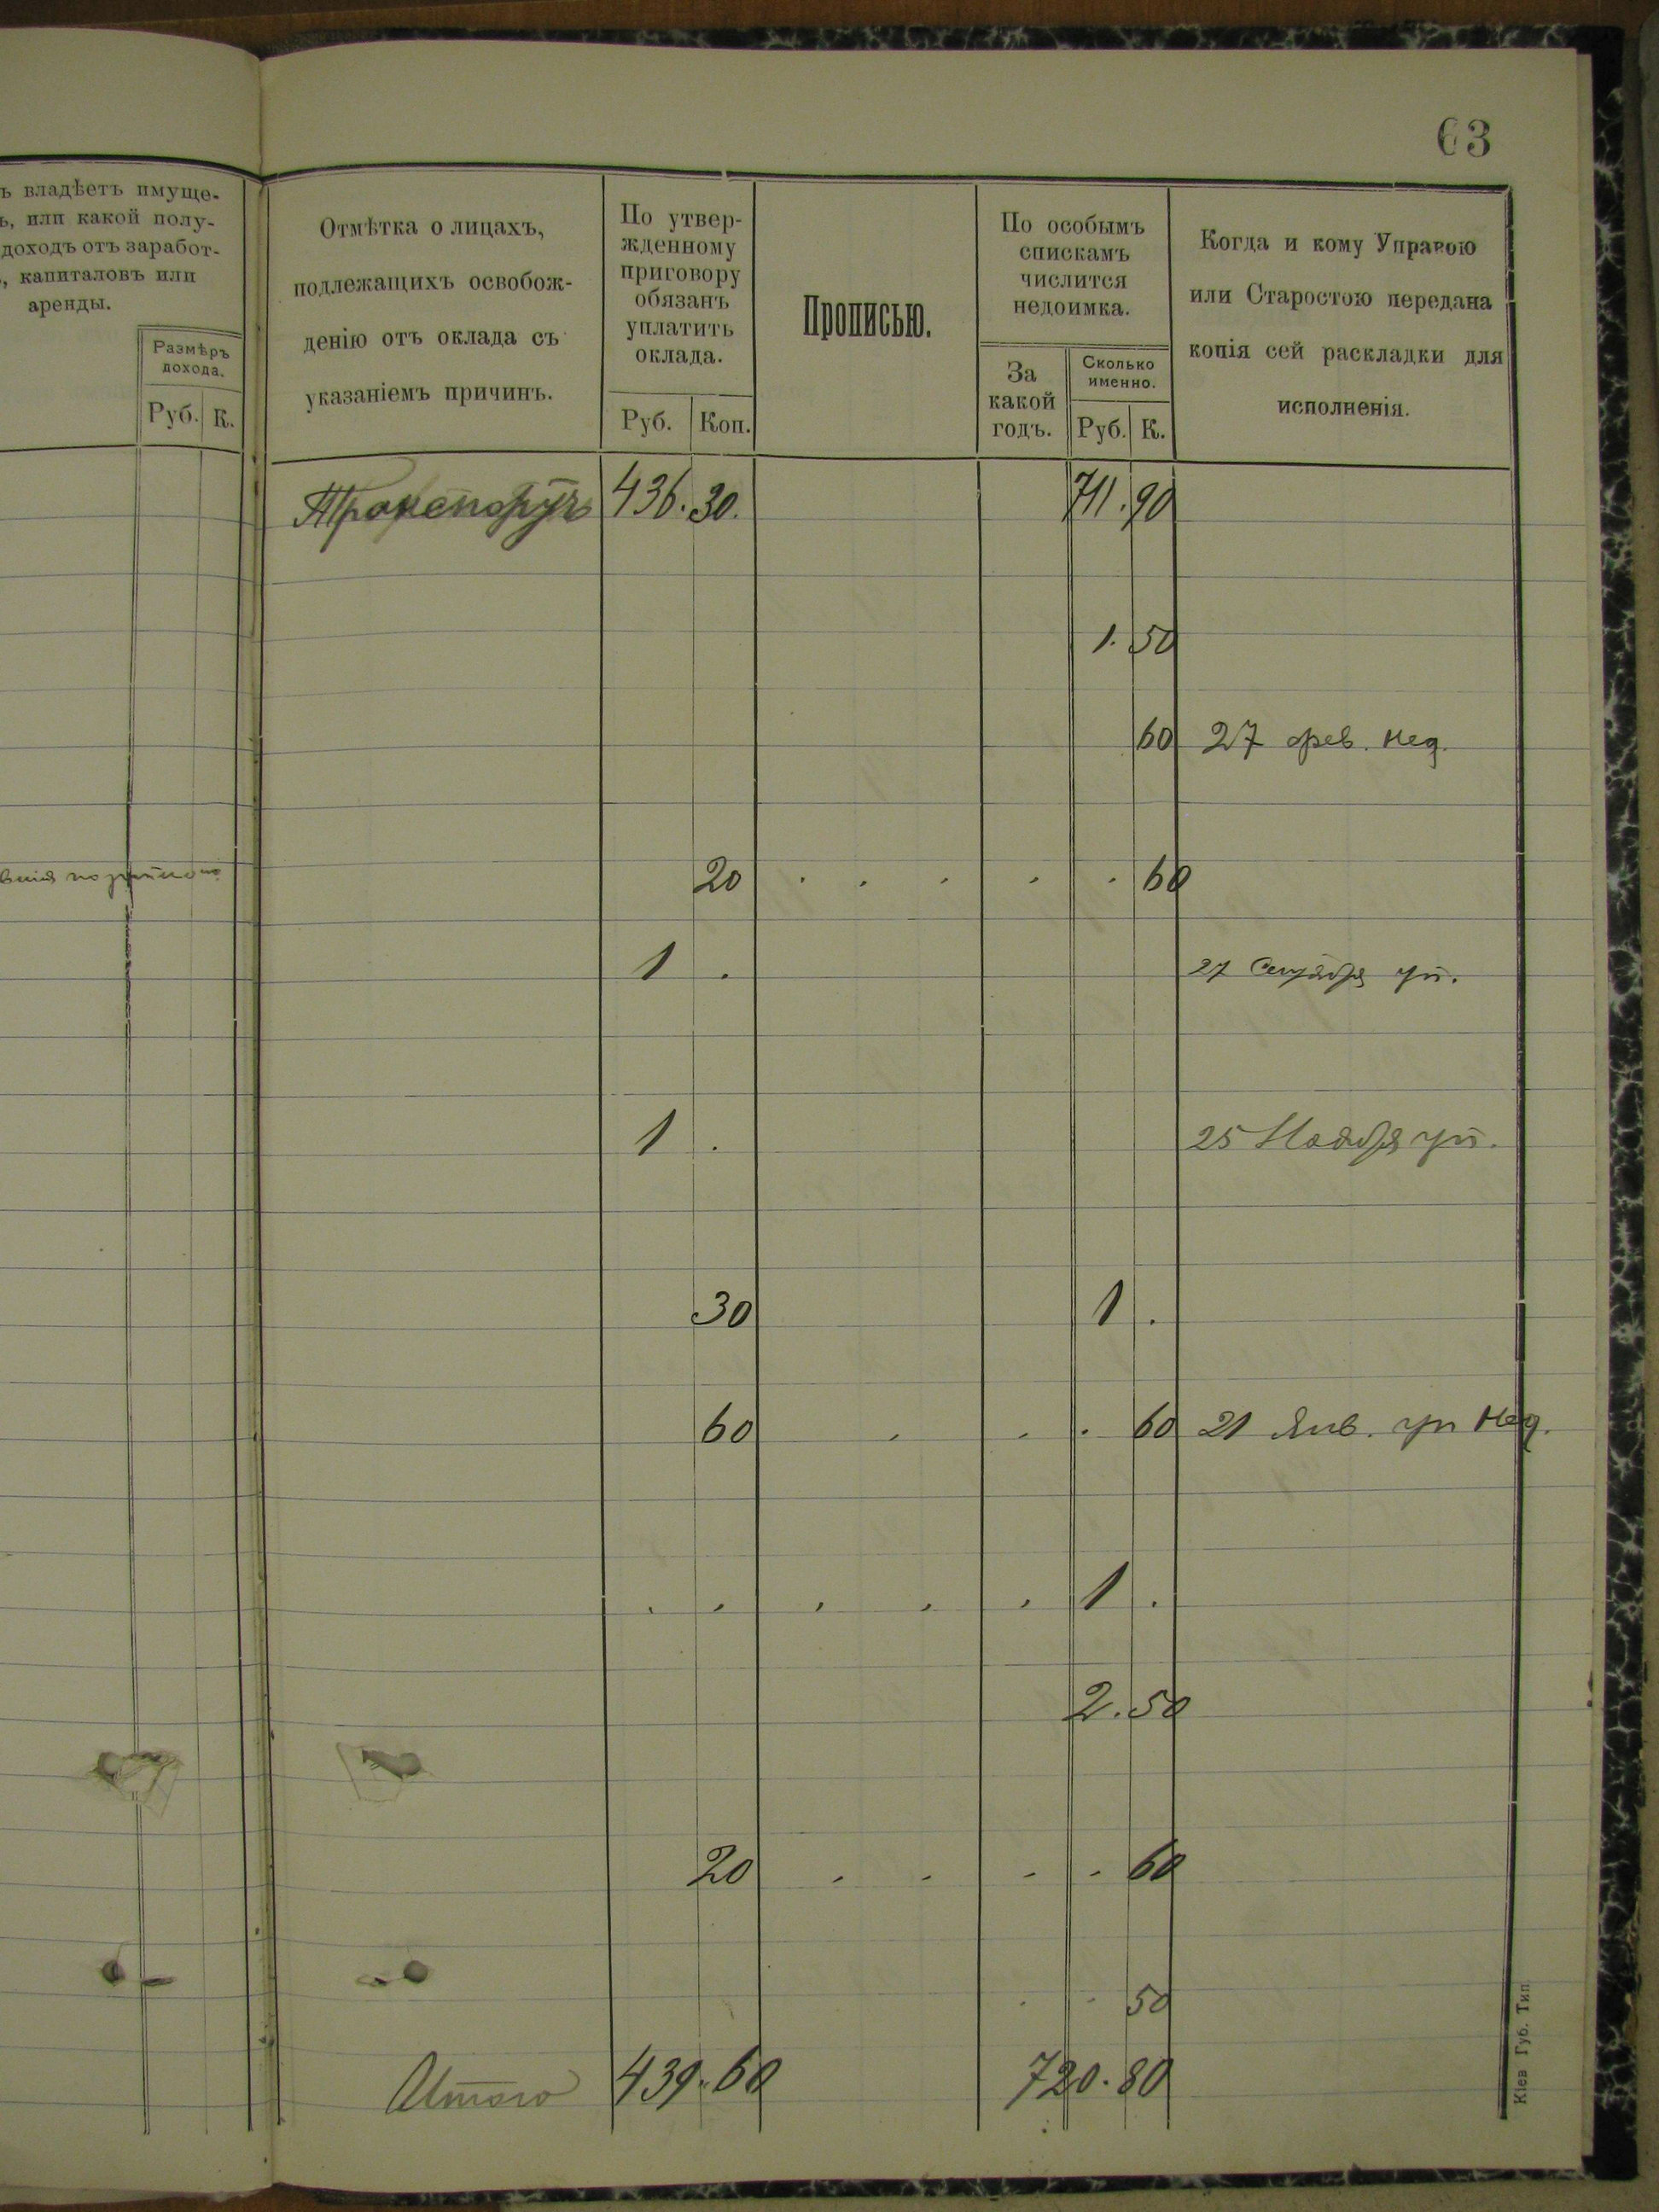 63
ъ владѣетъ имуще-
ь, или какой полу-
доходъ отъ заработ-
, капиталовъ или
аренды.
Размѣръ
дохода.
Руб. К.
Отмѣтка о лицахъ,
подлежащихъ освобож-
денію отъ оклада съ
указаніемъ причинъ.
По утвер-
жденному
приговору
обязанъ
уплатить
оклада.
Руб. Коп.
Прописью.
По особымъ
спискамъ
числится
недоимка.
За
какой
годъ.
Сколько
именно.
Руб. К.
Когда и кому Управою
или Старостою передана
копія сей раскладки для
исполненія.
Транспортъ 436. 30. 711. 90
1. 50
60 27 фев. нед.
20 . . . . . 60
1 . 27 Сентября уп.
1 . 25 Ноября уп.
30 1 .
60 . . . 60 21 Янв. уп нед.
. . . . . 1 .
2. 50
20 . . . . 60
. . 50
Итого 439. 60 720. 80
Кіев Губ. Тип